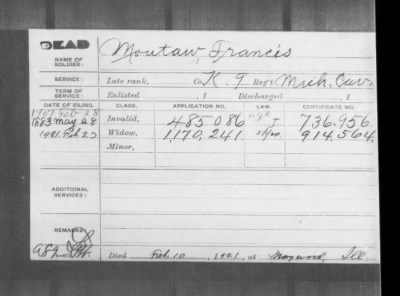 DEAD
NAME OF SOLDIER: Moutaw, Francis
SERVICE: Late rank, Co. K. 9 Reg't Mich. Cav.
TERM OF SERVICE: Enlisted , 1 Discharged , 1
DATE OF FILING. CLASS. APPLICATION NO. LAW. CERTIFICATE NO.
1883 May 28 Invalid, 485 086 736.956
1921 Feb. 23 Widow, 1,170,241. 914,564.
Minor,
ADDITIONAL SERVICES:
REMARKS:
Died Feb. 10 , 1921, at Maywood, Ill.